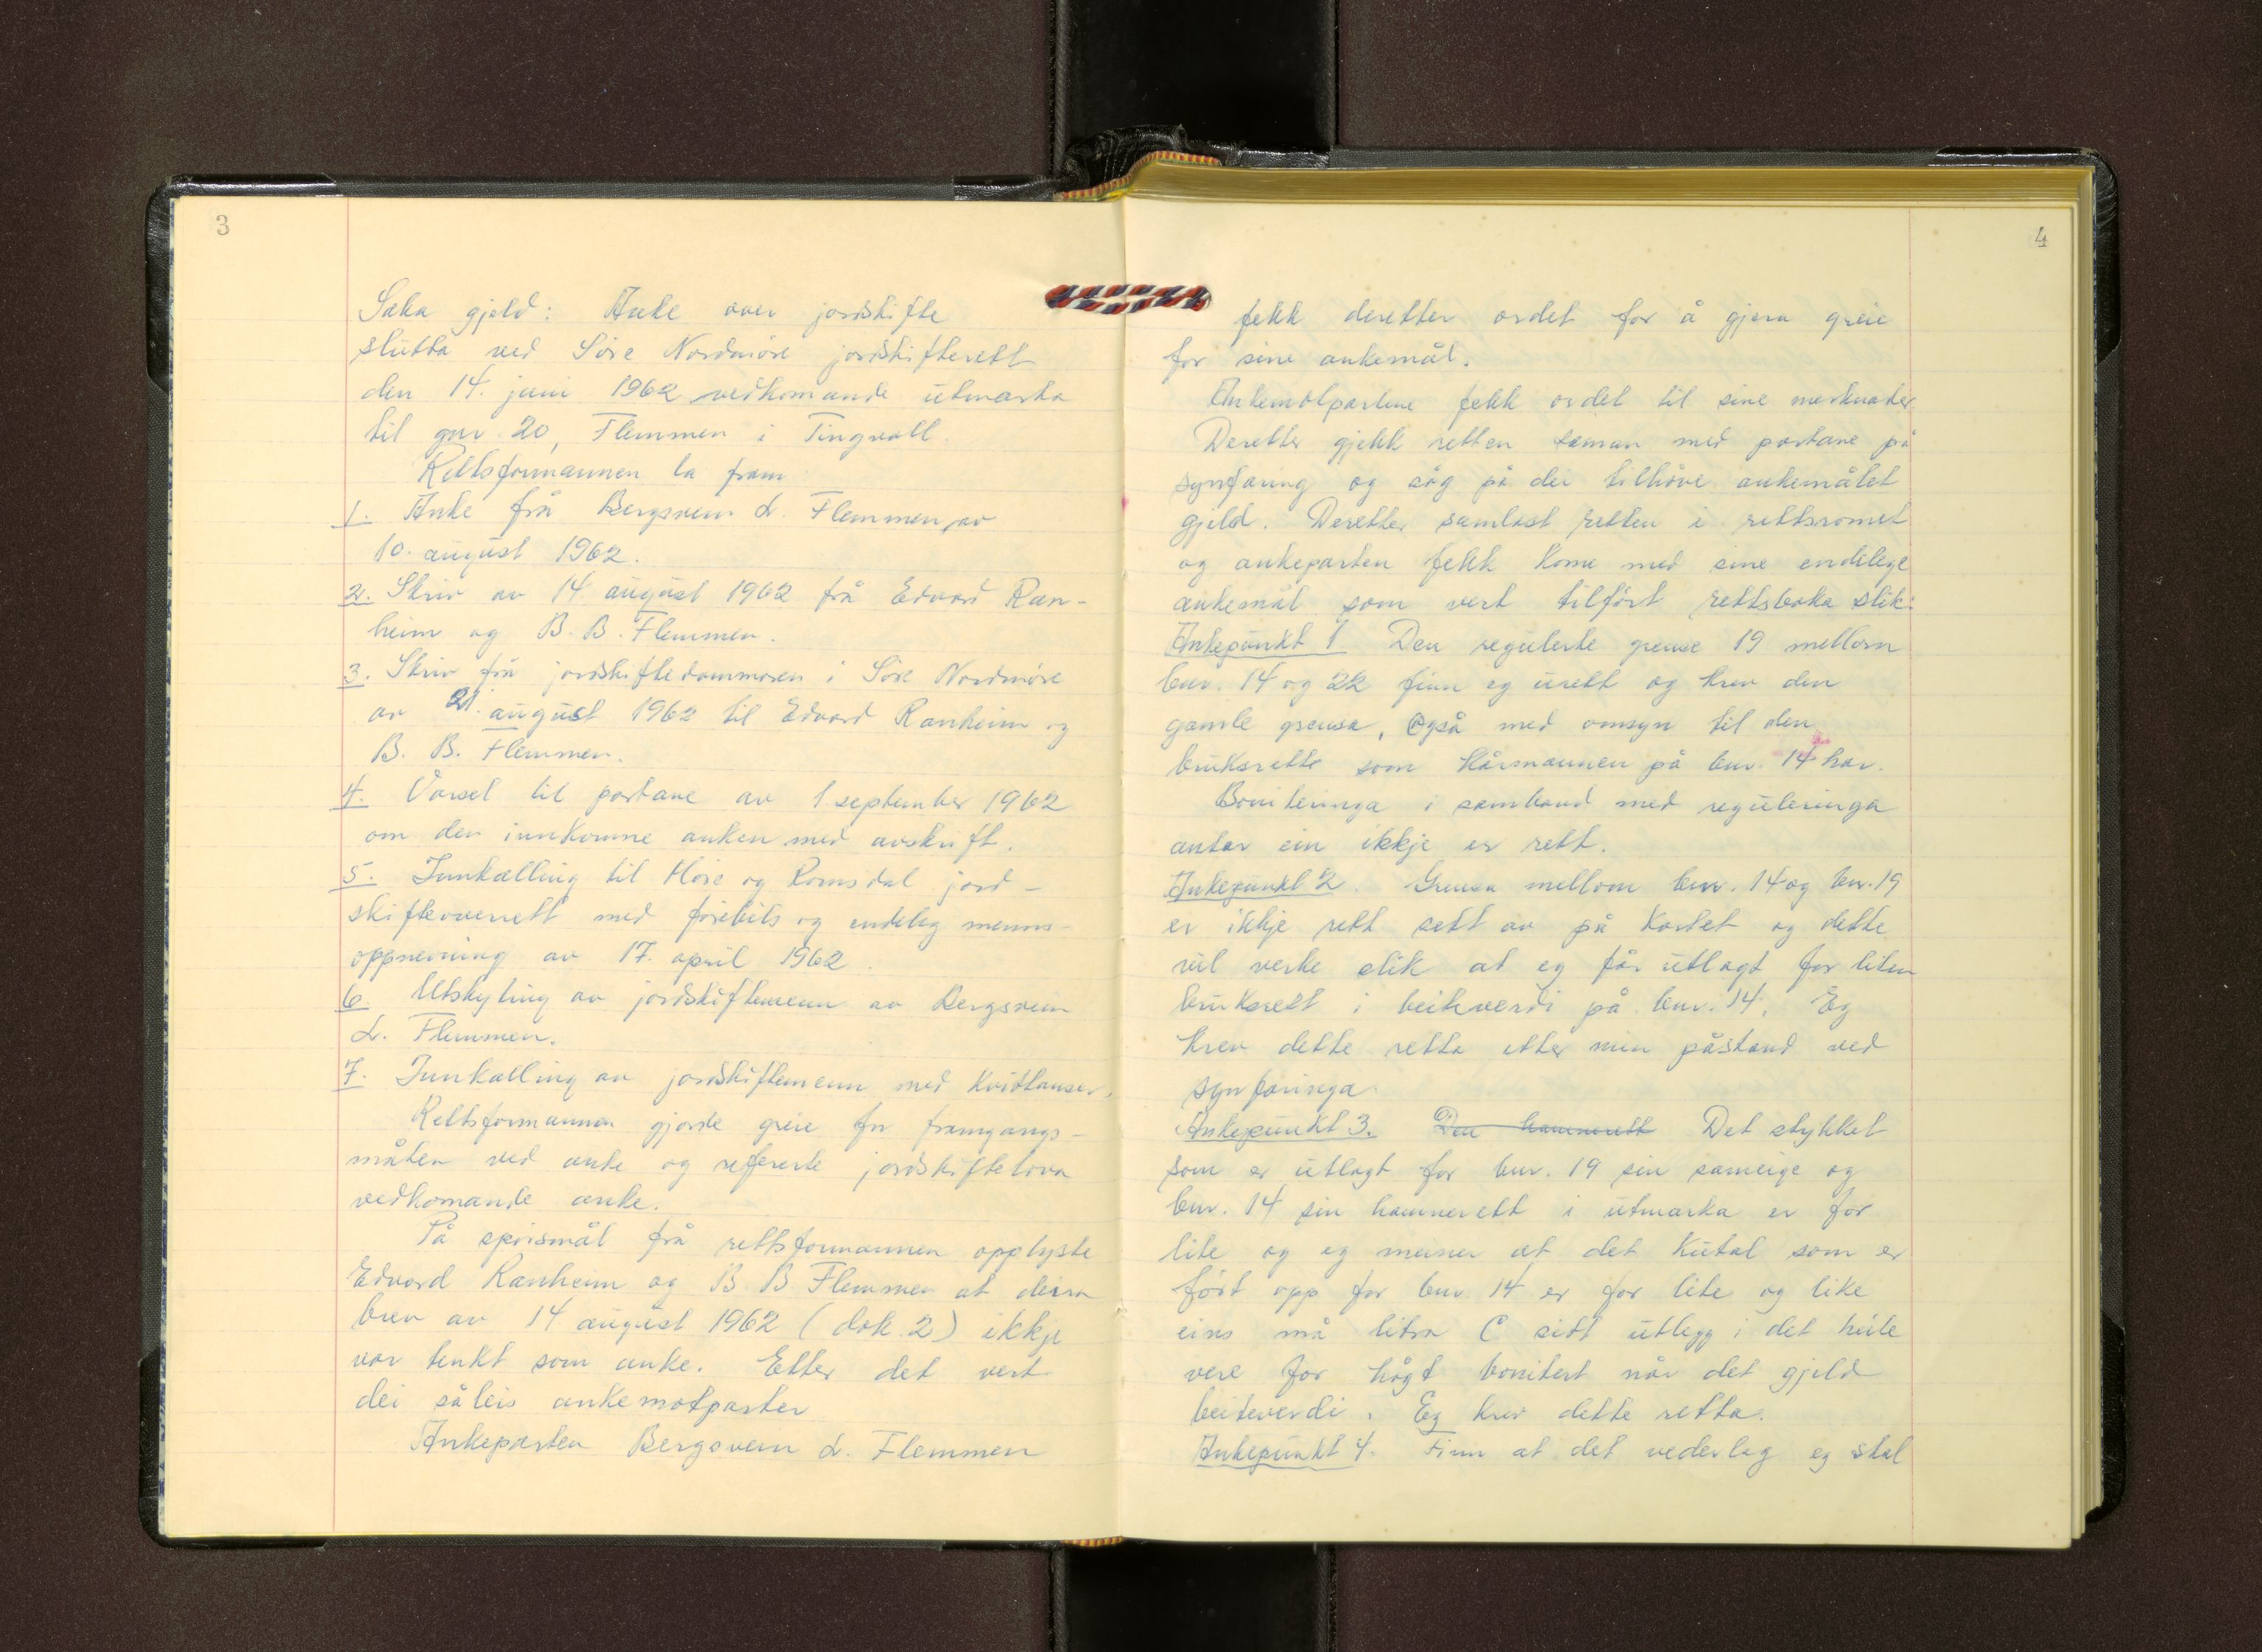 3
Saka gjeld: Anke over jordskifte
slutta ved Söre Nordmöre jordskifterett
den 14. juni 1962 vedkomande utmarka
til gnr. 20, Flemmen i Tingvoll.
Rettsformannen la fram
1. Anke frå Bergsvein L. Flemmen, av
10. august 1962.
2. Skriv av 14 august 1962 frå Edvard Ran-
heim og B. B. Flemmen.
3. Skriv frå jordskiftedommaren i Söre Nordmöre
av 21. august 1962 til Edvard Ranheim og
B. B. Flemmen.
4. Varsel til partane av 1. september 1962
om den innkomne anken med avskrift.
5. Innkalling til Möre og Romsdal jord-
skifteoverrett med förebils og endeleg menns-
oppnevning av 17. april 1962.
6. Utskyting av jordskiftemenn av Bergsvein
L. Flemmen.
7. Innkalling av jordskiftemenn med kvittanser.
Rettsformannen gjorde greie for framgangs-
måten ved anke og refererte jordskiftelova
vedkomande anke.
På spörsmål frå rettsformannen opplyste
Edvard Ranheim og B. B Flemmen at deira
brev av 14 august 1962 (dok. 2) ikkje
var tenkt som anke. Etter det vert
dei såleis ankemotparter
Ankeparten Bergsvein L. Flemmen
4
fekk deretter ordet for å gjera greie
for sine ankemål.
Ankemotpartene fekk ordet til sine merknader
Deretter gjekk retten saman med partane på
synfaring og såg på dei tilhöve ankemålet
gjeld. Deretter samlast retten i rettsromet
og ankeparten fekk kome med sine endelege
ankemål som vert tilfört rettsboka slik:
Ankepunkt 1 Den regulerte grense 19 mellom
bnr. 14 og 22 finn eg urett og krev den
gamle grensa, også med omsyn til den
bruksrett som kårmannen på bnr. 14 har.
Boniteringa i samband med reguleringa
antar ein ikkje er rett.
Ankepunkt 2. Grensa mellom bnr. 14 og bnr. 19
er ikkje rett sett av på kartet og dette
vil verke slik at eg får utlagt for liten
bruksrett i beiteverdi på bnr. 14. Eg
krev dette retta etter min påstand ved
synfaringa.
Ankepunkt 3. Den hamnerett Det stykket
som er utlagt for bnr. 19 sin sameige og
bnr. 14 sin hamnerett i utmarka er for
lite og eg meiner at det kutal som er
fört opp for bnr 14 er for lite og like
eins må litra C sitt utlegg i det heile
vere for högt bonitert når det gjeld
beiteverdi. Eg krev dette retta.
Ankepunkt 4. Finn at det vederlag eg skal